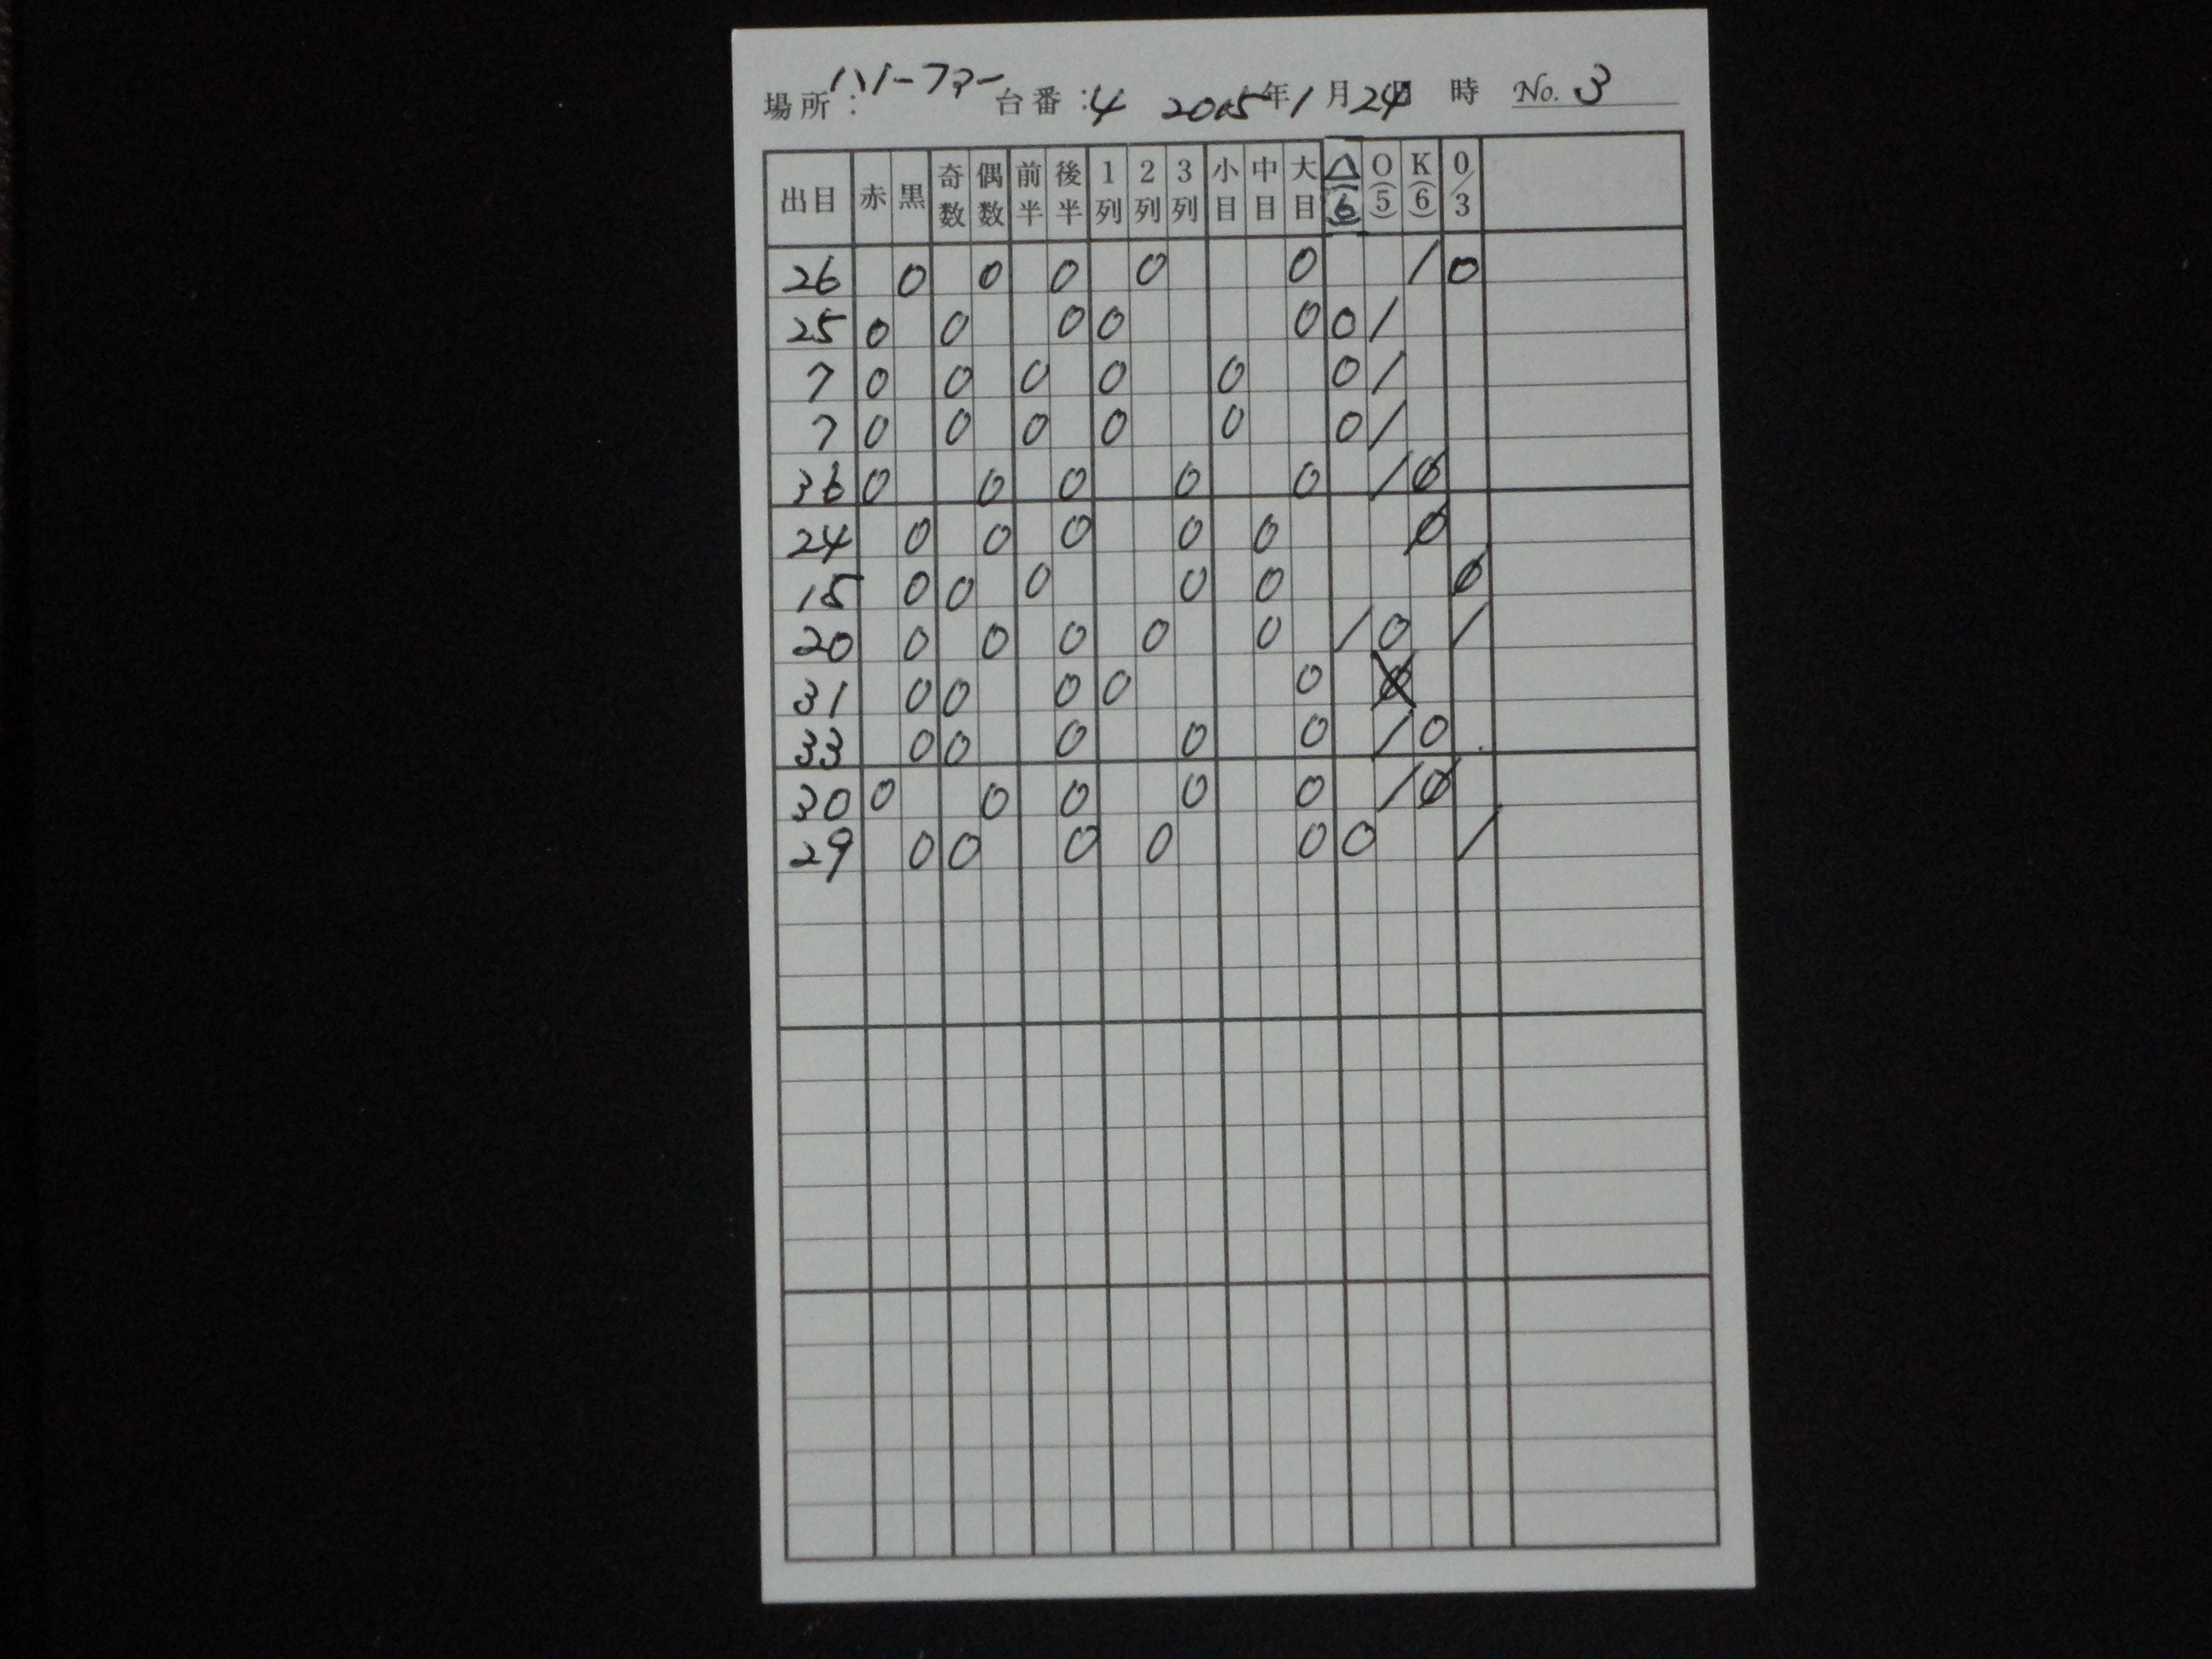 場所：ハーフアー 台番：4 2015年1月24日 時 No. 3
出目 赤 黒 奇数 偶数 前半 後半 1列 2列 3列 小目 中目 大目 △(6) O(5) K(6) 0/3
26 0 0 0 0 0 / 0
25 0 0 0 0 0 0 /
7 0 0 0 0 0 0 /
7 0 0 0 0 0 0 /
36 0 0 0 0 0 / Ø
24 0 0 0 0 0 Ø
15 0 0 0 0 0 Ø
20 0 0 0 0 0 / 0 /
31 0 0 0 0 0
33 0 0 0 0 0 / 0
30 0 0 0 0 0 / Ø
29 0 0 0 0 0 0 /